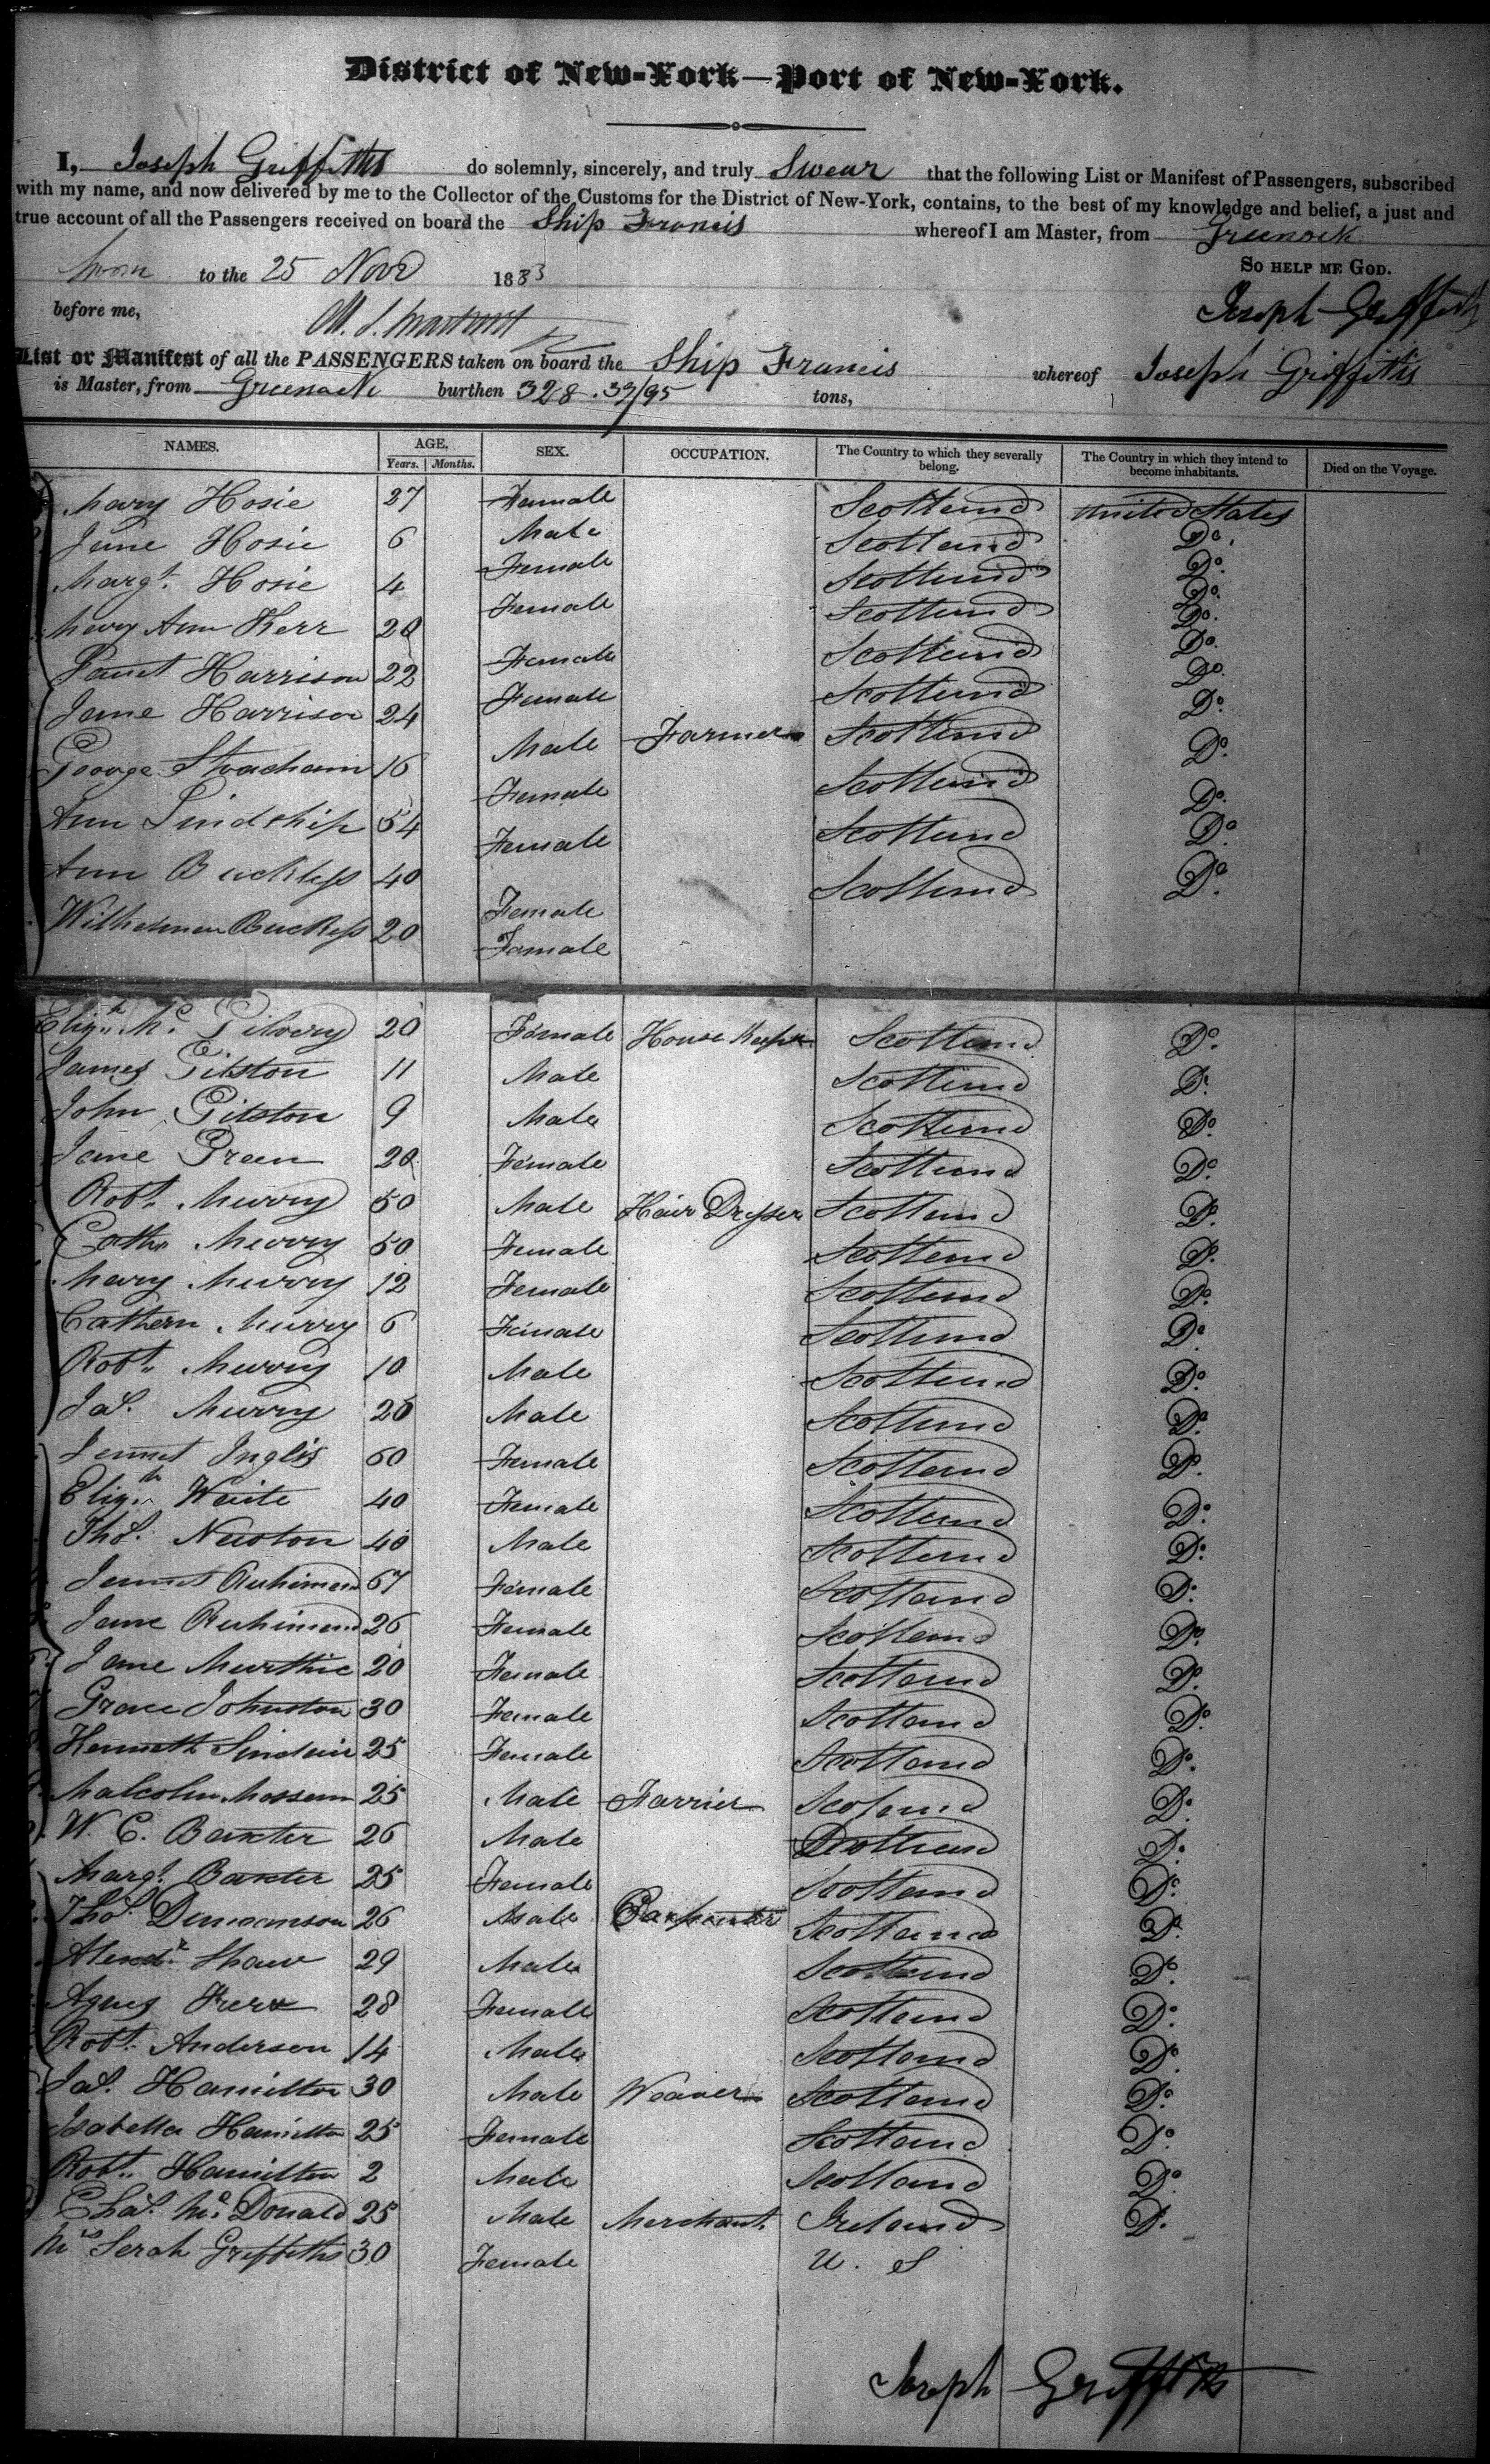 District of New-York—Port of New-York.
I, Joseph Griffiths do solemnly, sincerely, and truly Swear that the following List or Manifest of Passengers, subscribed
with my name, and now delivered by me to the Collector of the Customs for the District of New-York, contains, to the best of my knowledge and belief, a just and
true account of all the Passengers received on board the Ship Francis whereof I am Master, from Greenock
Sworn to the 25 Novr 1833 So help me God.
before me, Joseph Griffiths
List or Manifest of all the PASSENGERS taken on board the Ship Francis whereof Joseph Griffiths
is Master, from Greenock burthen 328 .39/95 tons,
NAMES. AGE. Years. Months. SEX. OCCUPATION. The Country to which they severally belong. The Country in which they intend to become inhabitants. Died on the Voyage.
Mary Hosie 27 Female Scotland United States
Jane Hosie 6 Male Scotland Do.
Margt. Hosie 4 Female Scotland Do.
Mary Ann Kerr 20 Female Scotland Do.
Janet Harrison 22 Female Scotland Do.
Jane Harrison 24 Female Scotland Do.
George Strachan 16 Male Farmer Scotland Do.
Ann Lindship 54 Female Scotland Do.
Ann Buckless 40 Female Scotland Do.
Buckless 20 Female Scotland Do.
Female
Elizth. Mc. Gilvery 20 Female House Keeper Scotland Do.
James Gilston 11 Male Scotland Do.
John Gilston 9 Male Scotland Do.
Jane Green 20 Female Scotland Do.
Robt. Murry 50 Male Hair Dresser Scotland Do.
Cathn Murry 50 Female Scotland Do.
Mary Murry 12 Female Scotland Do.
Cathern Murry 6 Female Scotland Do.
Robt. Murry 10 Male Scotland Do.
Jas. Murry 20 Male Scotland Do.
Jennet Inglis 60 Female Scotland Do.
Elizth. Waite 40 Female Scotland Do.
Thos. Newton 40 Male Scotland Do.
Jennet 67 Female Scotland Do.
Jane 26 Female Scotland Do.
Jane Murthie 20 Female Scotland Do.
Grace Johnston 30 Female Scotland Do.
Kenneth Sinclair 25 Female Scotland Do.
Malcolm 25 Male Farrier Scotland Do.
W. C. Baxter 26 Male Scotland Do.
Margt. Baxter 25 Female Scotland Do.
Thos. Duncanson 26 Male Carpenter Scotland Do.
Alexdr. Shaw 29 Male Scotland Do.
Agnes 28 Female Scotland Do.
Robt. Anderson 14 Male Scotland Do.
Jas. Hamilton 30 Male Weaver Scotland Do.
Isabella Hamilton 25 Female Scotland Do.
Robt. Hamilton 2 Male Scotland Do.
Chas. Mc. Donald 25 Male Merchant Ireland Do.
Mrs Serah Griffiths 30 Female U. S
Joseph Griffiths